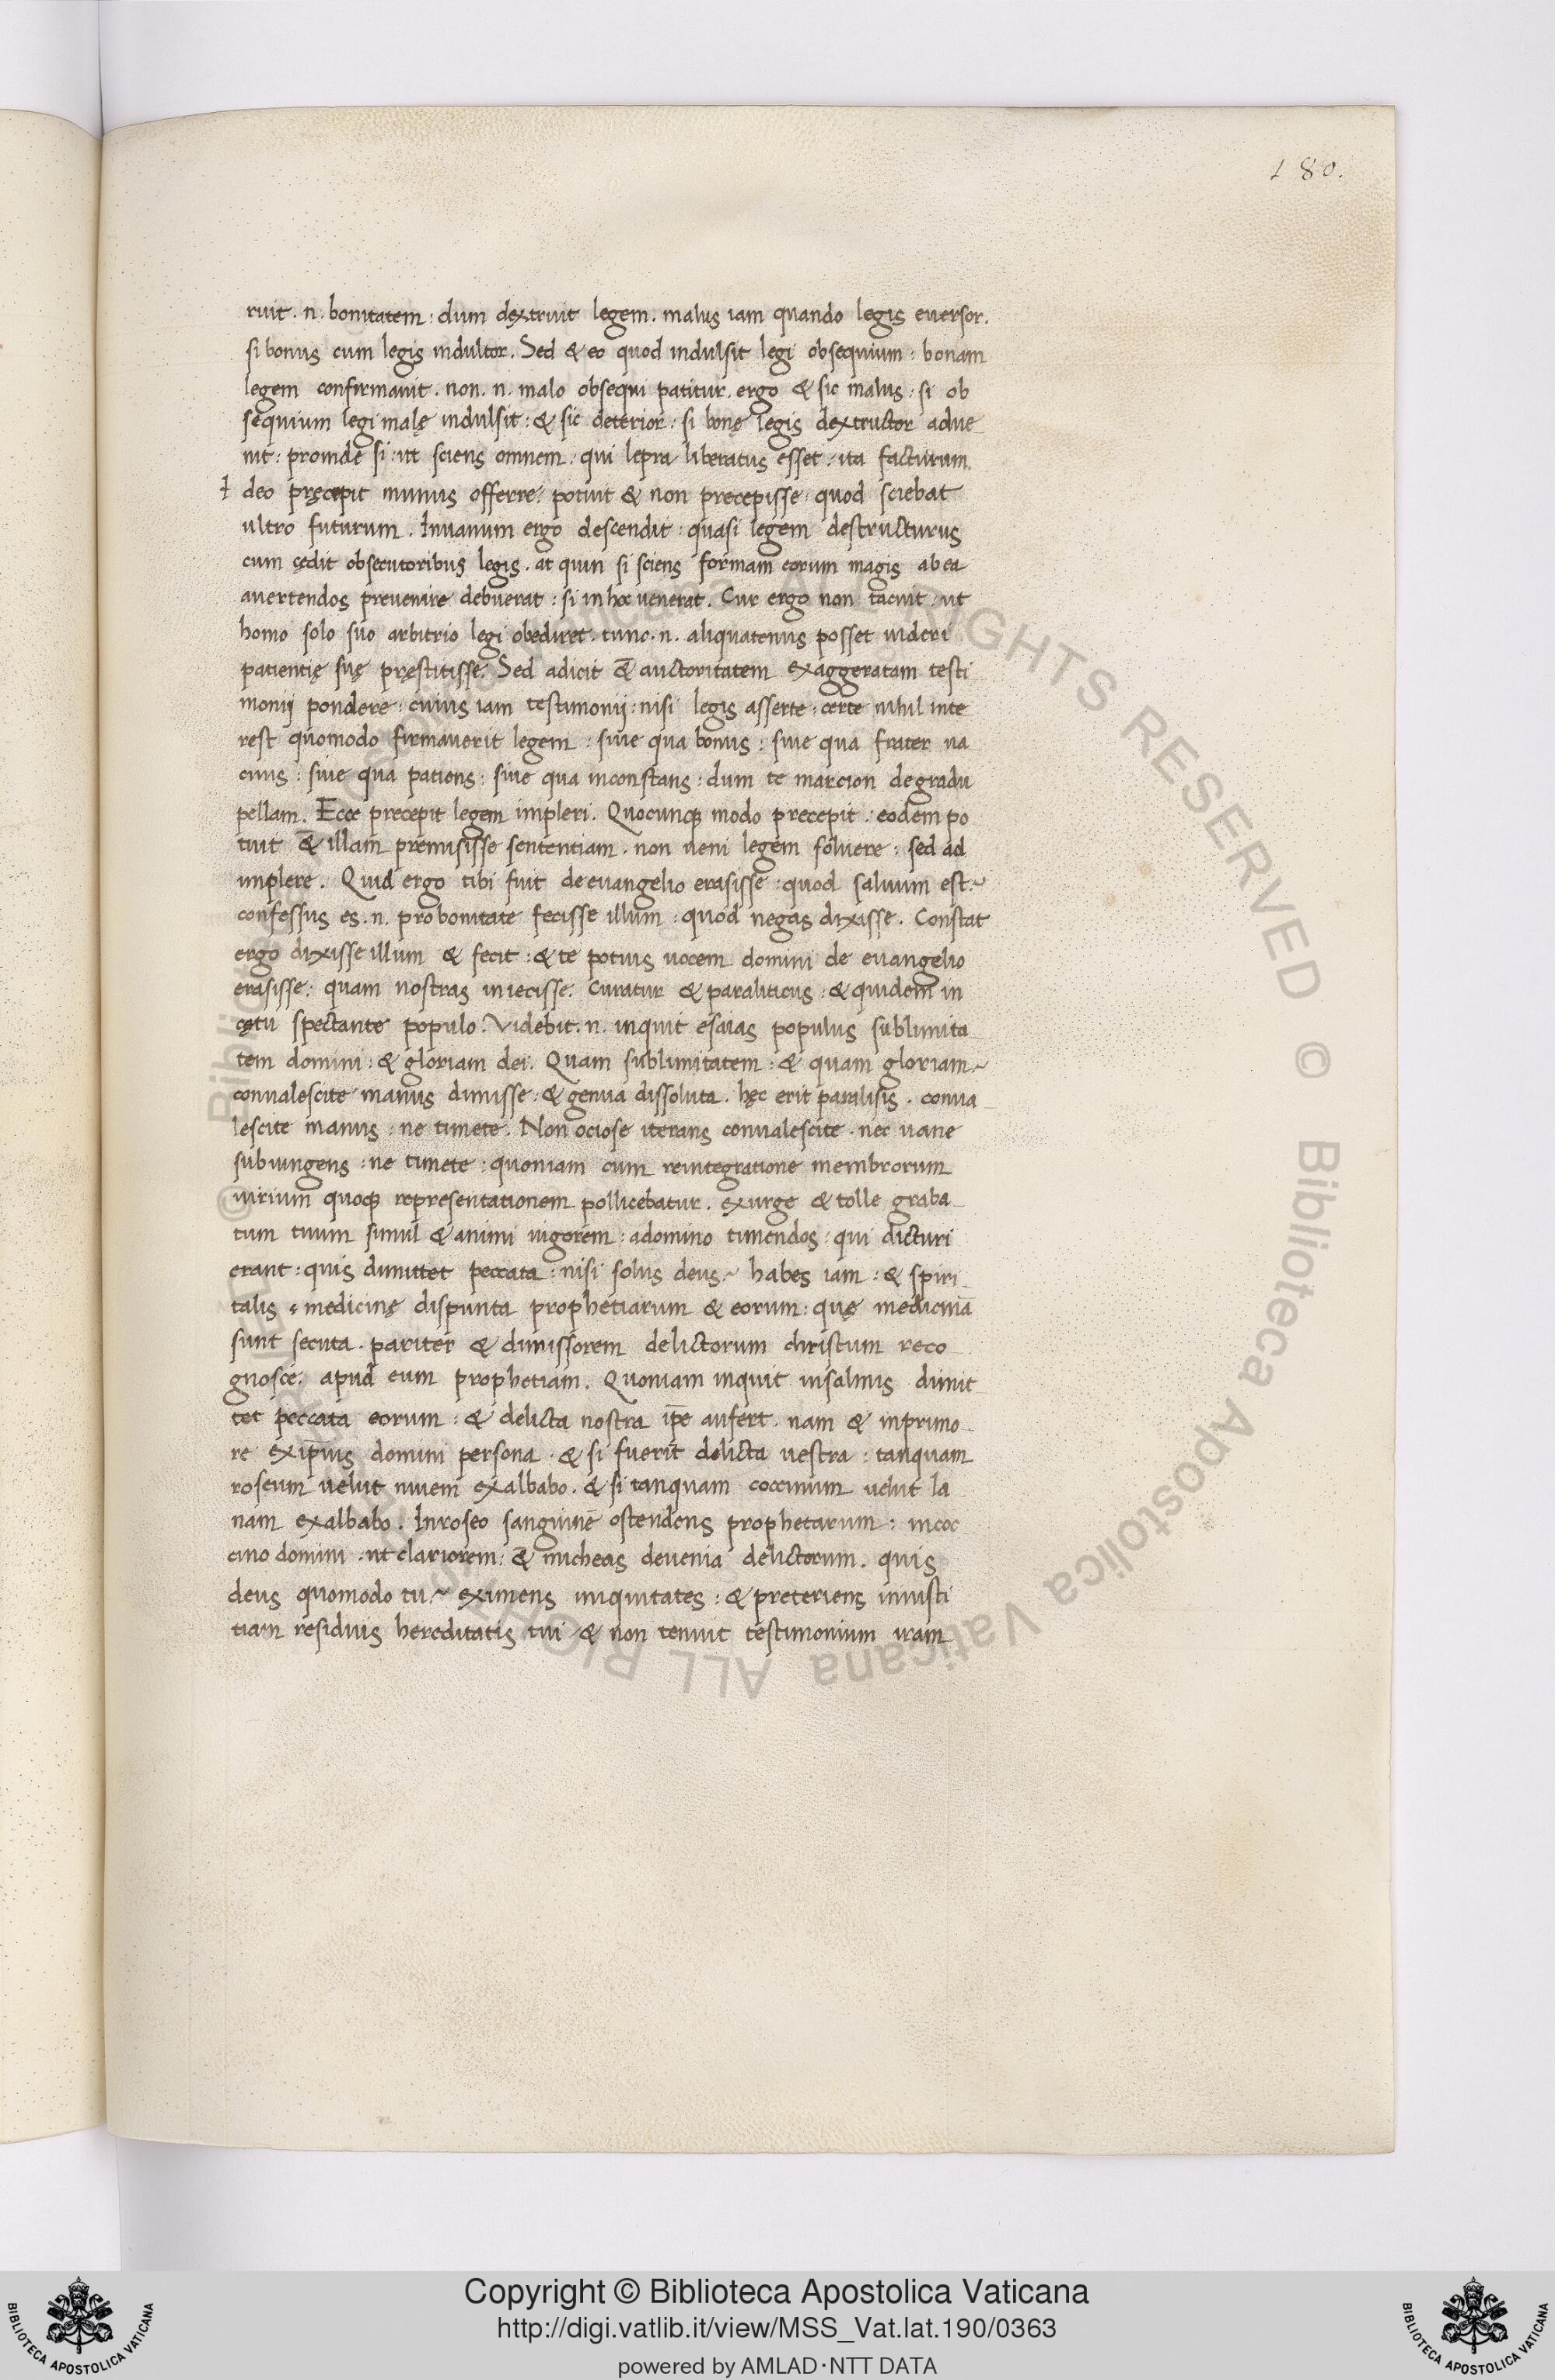 180.
ruit . n . bonitatem : dum dextruit legem . malus iam quando legis euersor .
si bonus cum legis indultor . Sed & eo quod indulsit legi obsequium : bonam
legem confirmauit . non . n . malo obsequi patitur . ergo & sic malus : si ob
sequium legi malę indulsit : & sic deterior : si bonę legis dextructor adue
nit : proinde si : ut sciens omnem : qui lepra liberatus esset : ita facturum
deo pręcepit munus offerre : potuit & non precepisse : quod sciebat
ultro futurum . Inuanum ergo descendit : quasi legem destructurus
cum cędit obsecutoribus legis . at quin si sciens formam eorum magis ab ea
auertendos preuenire debuerat : si in hoc uenerat . Cur ergo non tacuit : ut
homo solo suo arbitrio legi obediret . tunc . n . aliquatenus posset uideri
patientię suę pręstitisse . Sed adicit & auctoritatem exaggeratam testi
monij pondere : cuius iam testimonij : nisi legis asserte : certe nihil inte
rest quomodo firmauerit legem : siue qua bonus : siue qua frater ua
cuus : siue qua patiens : siue qua inconstans : dum te marcion de gradu
pellam . Ecce precepit legem impleri . Quocunq; modo precepit : eodem po
tuit & illam premisisse sententiam . non ueni legem soluere : sed ad
implere . Quid ergo tibi fuit de euangelio erasisse : quod saluum est .~
confessus es . n . pro bonitate fecisse illum : quod negas dixisse . Constat
ergo dixisse illum & fecit : & te potius uocem domini de euangelio
erasisse : quam nostras iniecisse . Curatur & paraliticus : & quidem in
cętu spectante populo . Videbit . n . inquit esaias populus sublimita
tem domini : & gloriam dei . Quam sublimitatem : & quam gloriam .~
conualescite manus dimisse : & genua dissoluta . hęc erit paralisis . conua
lescite manus : ne timete . Non ociose iterans conualescite . nec uane
subiungens : ne timete : quoniam cum reintegratione membrorum
uirium quoq; representationem pollicebatur . exurge & tolle graba
tum tuum simul & animi uigorem : adomino timendos : qui dicturi
erant : quis dimittet peccata : nisi solus deus .~ habes iam : & spiri
talis & medicinę dispunta prophetiarum & eorum : quę medicinā
sunt secuta . pariter & dimissorem delictorum christum reco
gnosce . apud eum prophetiam . Quoniam inquit insalmis dimit
tet peccata eorum : & delicta nostra ip̄e aufert . nam & inprimo
re exip̄ius domini persona . & si fuerit delicta uestra : tanquam
roseum uelut niuem exalbabo . & si tanquam coccinum uelut la
nam exalbabo . Inroseo sanguinē ostendens prophetarum : incoc
cino domini . ut clariorem : & micheas deuenia delictorum . quis
deus quomodo tu .~ eximens iniquitates : & preteriens iniusti
tiam residuis hereditatis tui & non tenuit testimonium iram
Copyright © Biblioteca Apostolica Vaticana
http://digi.vatlib.it/view/MSS_Vat.lat.190/0363
powered by AMLAD·NTT DATA
BIBLIOTECA APOSTOLICA VATICANA
BIBLIOTECA APOSTOLICA VATICANA